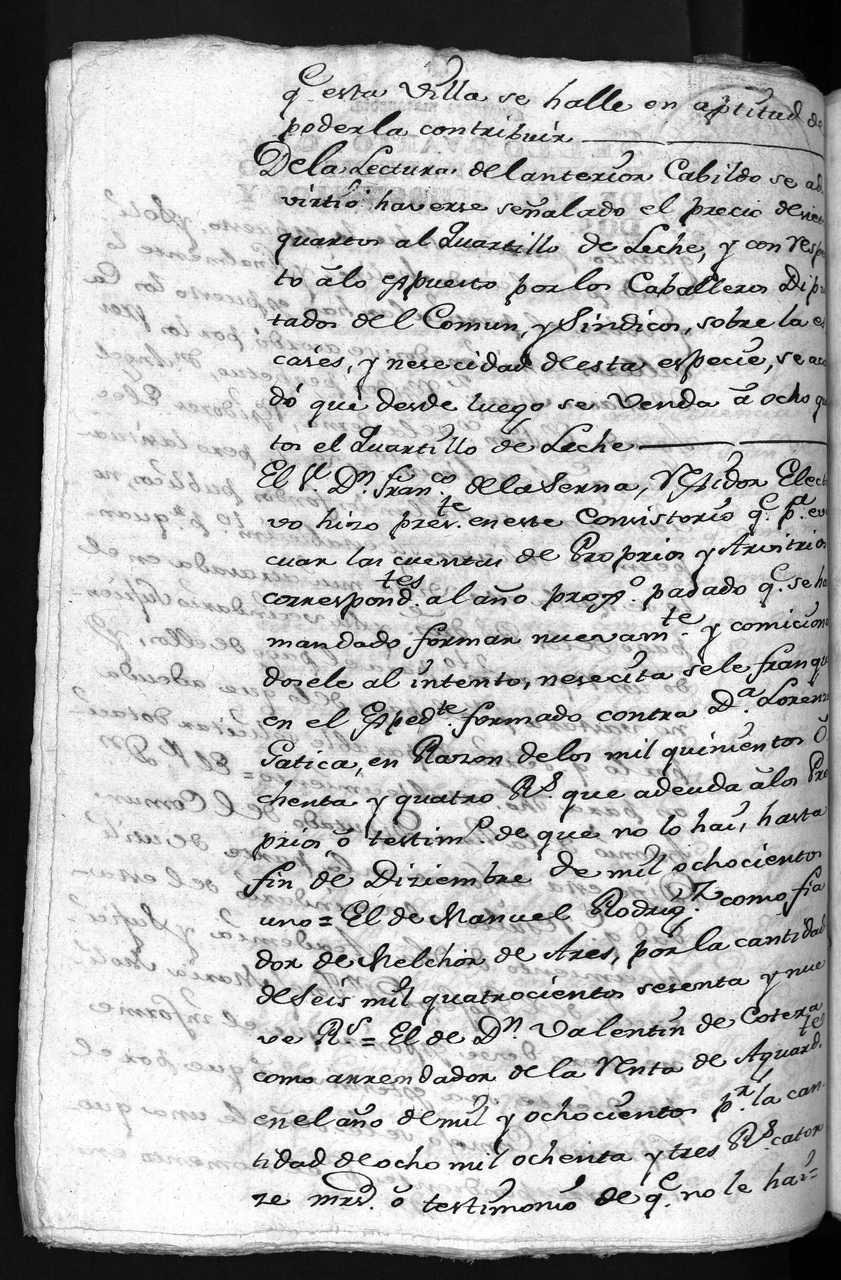 q.e esta Villa se halle en aptitud de
poderla contribuir
De la Lectura del anterior Cabildo se ad
virtió haverse señalado el precio de siete
quartos al Quartillo de Leche, y con resp
to álo Espuesto por los Caballeros Dipu
tados del Comun, y Sindicos, sobre la es
cases, y nesecidad de esta especie, se acor
dó que desde luego se venda á ocho qu
tos el Quartillo de Leche
El S.r D.n Fran.co de la Serna, Regidor Elect
vo hizo pres.te en este Consistorio q.e p.a eva
cuar las cuentas de Proprios y Arvitrios
correspond.tes al año prox.o pasado q.e se ha
mandado formar nuevam.te y comicionan
dosele al intento, nesecita se le franqu
en el Exped.te formado contra D.a Lorenza
Gatica, en Razon de los mil quinientos O
chenta y quatro R.s que adeuda álos Pro
prios, ó testim.o de que no lo hai, hasta
fin de Diziembre de mil ochocientos
uno = El de Manuel Rodrig.z como fia
dor de Melchor de Ares, por la cantidad
de Seis mil quatrocientos sesenta y nue
ve R.s = El de D.n Valentin de Cotera
como arrendador de la Renta de Aguard.tes
en el año de mil y ochocientos p.r la can
tidad de ocho mil ochenta y tres R.s cator
ze mrs. ó testimonio de q.e no le hai =